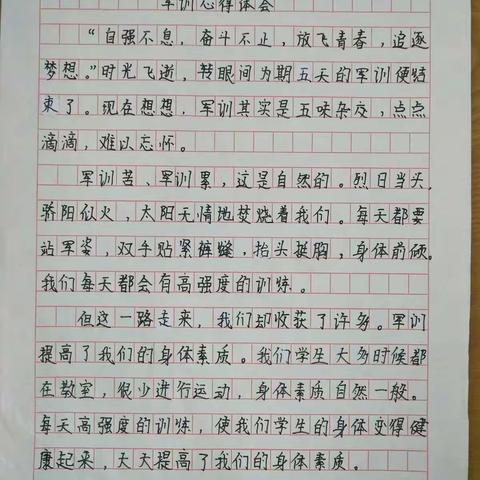 军训心得体会
“自强不息，奋斗不止，放飞青春，追逐
梦想。”时光飞逝，转眼间为期五天的军训便结
束了。现在想想，军训其实是五味杂交，点点
滴滴，难以忘怀。
军训苦、军训累，这是自然的。烈日当头，
骄阳似火，太阳无情地焚烧着我们。每天都要
站军姿，双手贴紧裤缝，抬头挺胸，身体前倾。
我们每天都会有高强度的训练。
但这一路走来，我们却收获了许多。军训
提高了我们的身体素质。我们学生大多时候都
在教室，很少进行运动，身体素质自然一般。
每天高强度的训炼，使我们学生的身体变得健
康起来，大大提高了我们的身体素质。